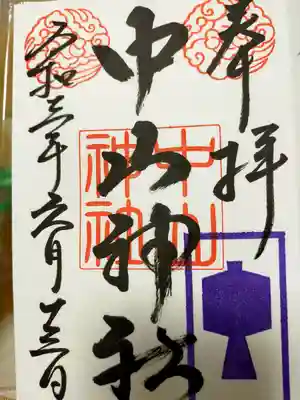 奉拝
中山神社
中山
神社
令和三年六月十三日